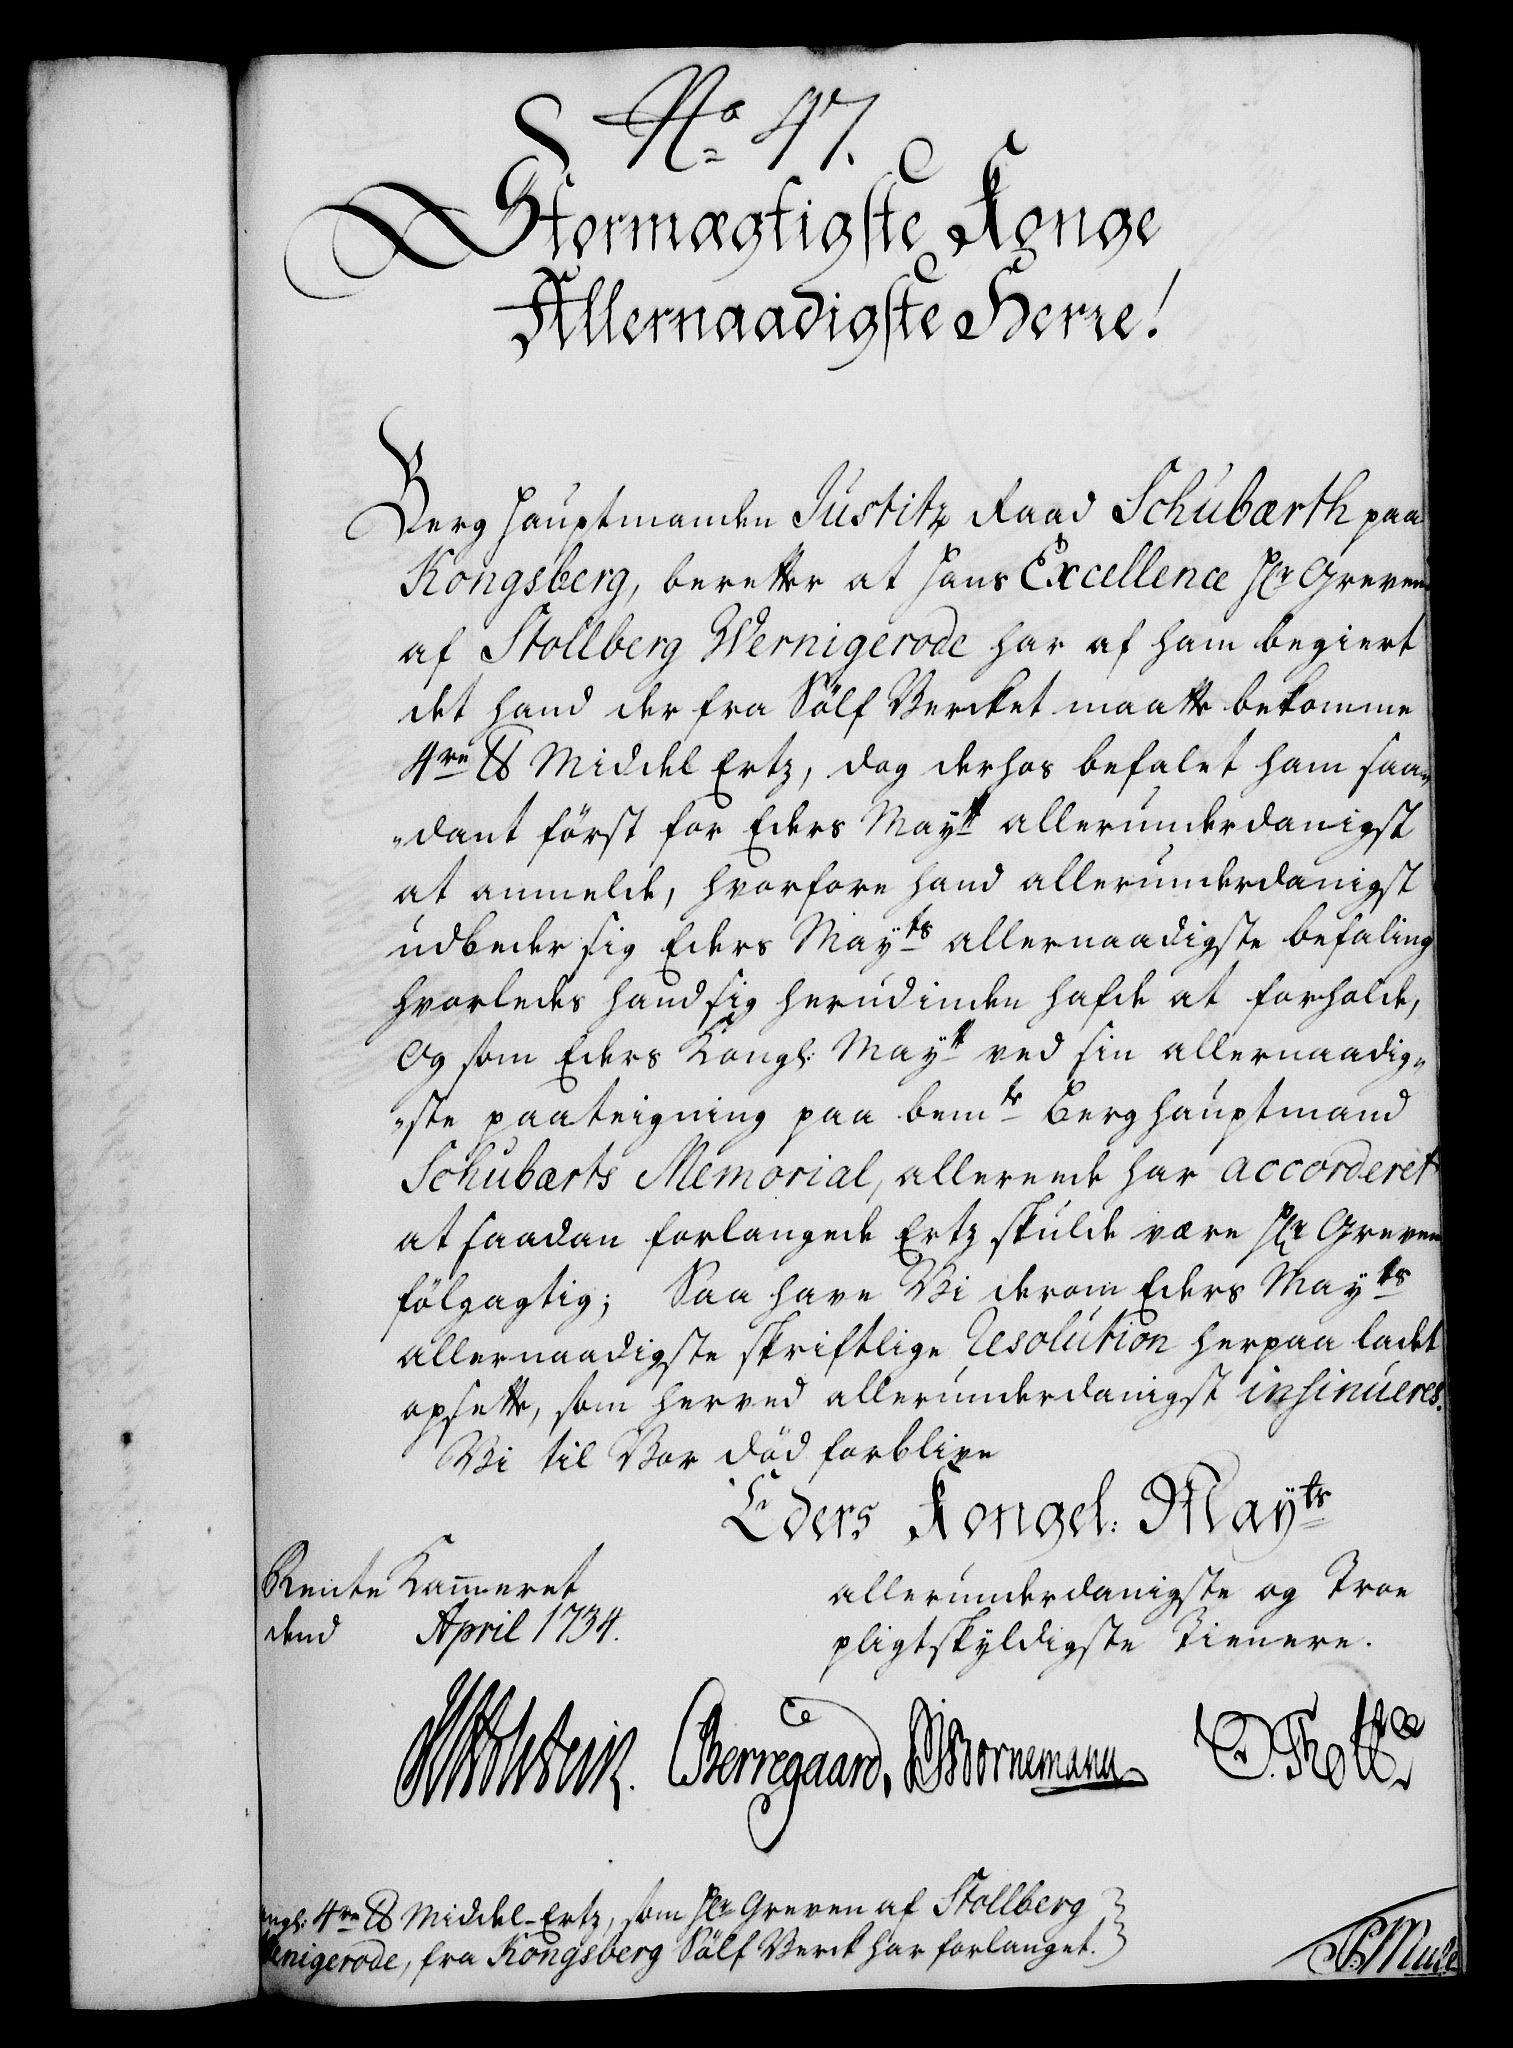 No 47.
Stormægtigste Konge
Allernaadigste Herre!
Berghauptmanden Justitz Raad Schubærth paa
Kongsberg, beretter at hans Excellence Hr Greven
af Stollberg Wernigerode har af ham begiert
det hand der fra Sölf Vercket maatte bekomme
4re ℔ Middel Ertz, dog derhos befalet ham saa„
„dant först for Eders Maytt allerunderdanigst
at anmelde, hvorfore hand allerunderdanigst
udbeder sig Eders Mayts allernaadigste befaling
hvorledes hand sig herudinden hafde at forholde,
Og som Eders Kongl: Maytt ved sin allernaadig„
„ste paateigning paa bemte Berghauptmand
Schubærts Memorial, allerede har accorderet
at saadan forlangede Ertz skulde være Hr Greven
fölgagtig; Saa have Vi derom Eders Mayts
allernaadigste skriftlige Resolution herpaa ladet
opsette, som herved allerunderdanigst insinueres.
Vi til Vor död forblive
Eders Kongel: Mayts
Rente Kammeret
dend April 1734.
allerunderdanigste og Troe
pligtskyldigste Tienere.
Berregaard. Bornemann O. Thott
angl: 4re ℔ Middel-Ertz, som Hr Greven af Stollberg
Wernigerode, fra Kongsberg Sölf Verck har forlanget.